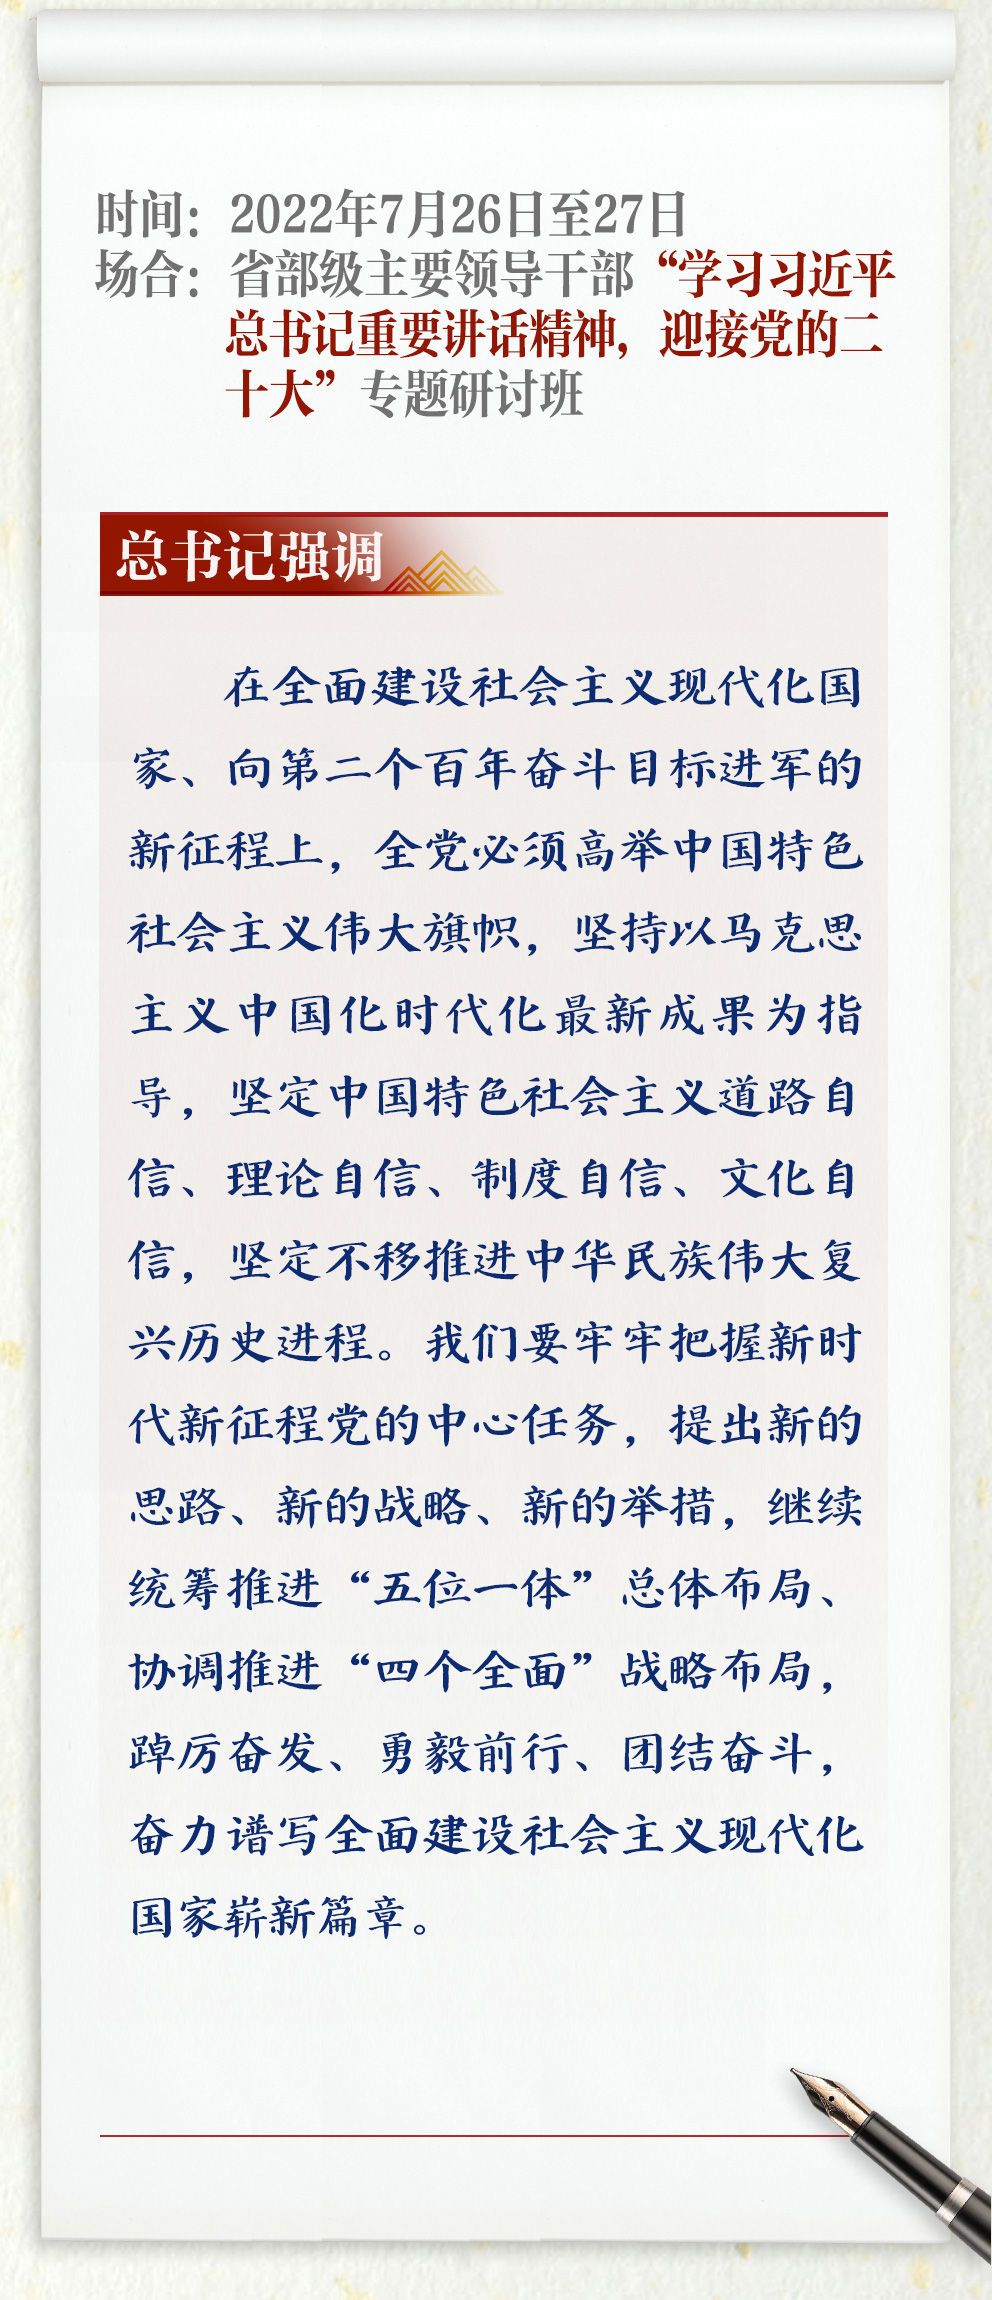 时间：2022年7月26日至27日
场合：省部级主要领导干部“学习习近平
总书记重要讲话精神，迎接党的二
十大”专题研讨班
总书记强调
在全面建设社会主义现代化国
家、向第二个百年奋斗目标进军的
新征程上，全党必须高举中国特色
社会主义伟大旗帜，坚持以马克思
主义中国化时代化最新成果为指
导，坚定中国特色社会主义道路自
信、理论自信、制度自信、文化自
信，坚定不移推进中华民族伟大复
兴历史进程。我们要牢牢把握新时
代新征程党的中心任务，提出新的
思路、新的战略、新的举措，继续
统筹推进“五位一体”总体布局、
协调推进“四个全面”战略布局，
踔厉奋发、勇毅前行、团结奋斗，
奋力谱写全面建设社会主义现代化
国家崭新篇章。